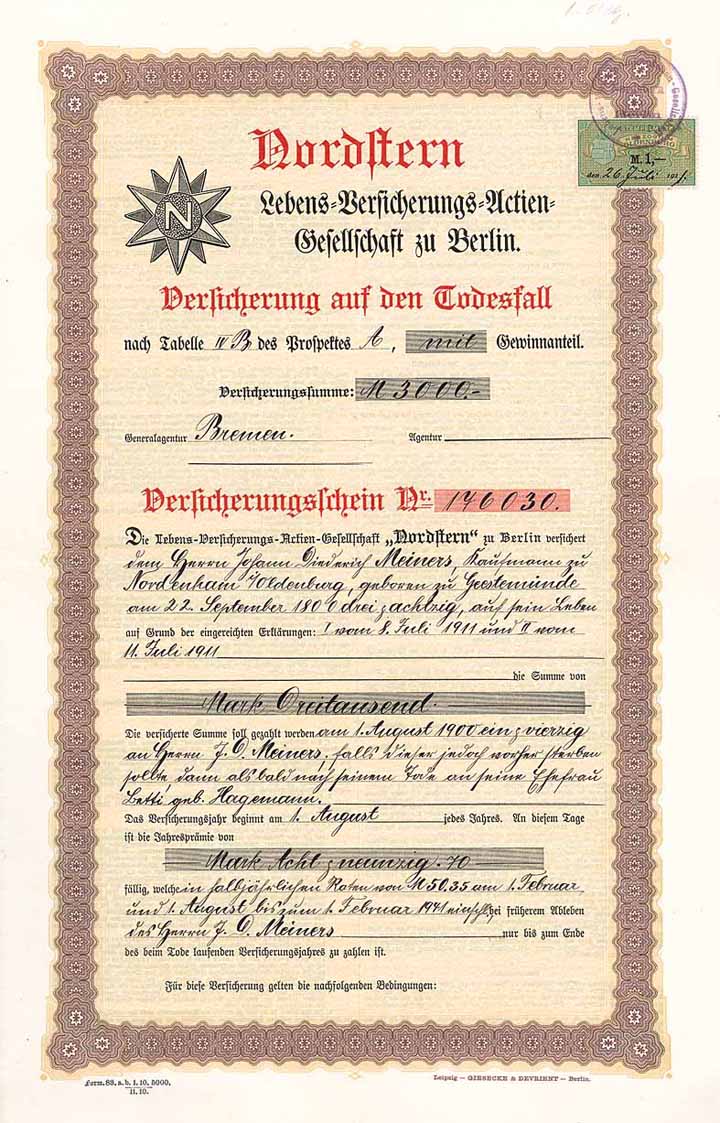 Nordstern
Lebens-Versicherungs-Actien-
Gesellschaft zu Berlin.
N
M. 1,—
den 26. Juli 191
Versicherung auf den Todesfall
nach Tabelle IV B des Prospektes A, mit Gewinnanteil.
Versicherungssumme: M 3000.-
Generalagentur Bremen. Agentur
Versicherungsschein Nr. 176030.
Die Lebens-Versicherungs-Actien-Gesellschaft „Nordstern“ zu Berlin versichert
dem Herrn Johann Diederich Meiners, Kaufmann zu
Nordenham /Oldenburg, geboren zu Geestemünde
am 22. September 1800 drei & achtzig, auf sein Leben
auf Grund der eingereichten Erklärungen: I vom 8. Juli 1911 und II vom
11. Juli 1911
die Summe von
Mark Dreitausend.
Die versicherte Summe soll gezahlt werden am 1. August 1900 ein & vierzig
an Herrn J. D. Meiners, falls dieser jedoch vorher sterben
sollte dann alsbald nach seinem Tode an seine Ehefrau
Betti geb. Hagemann.
Das Versicherungsjahr beginnt am 1. August jedes Jahres. An diesem Tage
ist die Jahresprämie von
Mark Acht & neunzig. 70
fällig, welche in halbjährlichen Raten von M 50.35 am 1. Februar
und 1. August bis zum 1. Februar 1941 einschl. bei früherem Ableben
des Herrn J. D. Meiners nur bis zum Ende
des beim Tode laufenden Versicherungsjahres zu zahlen ist.
Für diese Versicherung gelten die nachfolgenden Bedingungen:
Form. 83. a. b. 1. 10. 5000.
11. 10.
Leipzig — GIESECKE & DEVRIENT — Berlin.